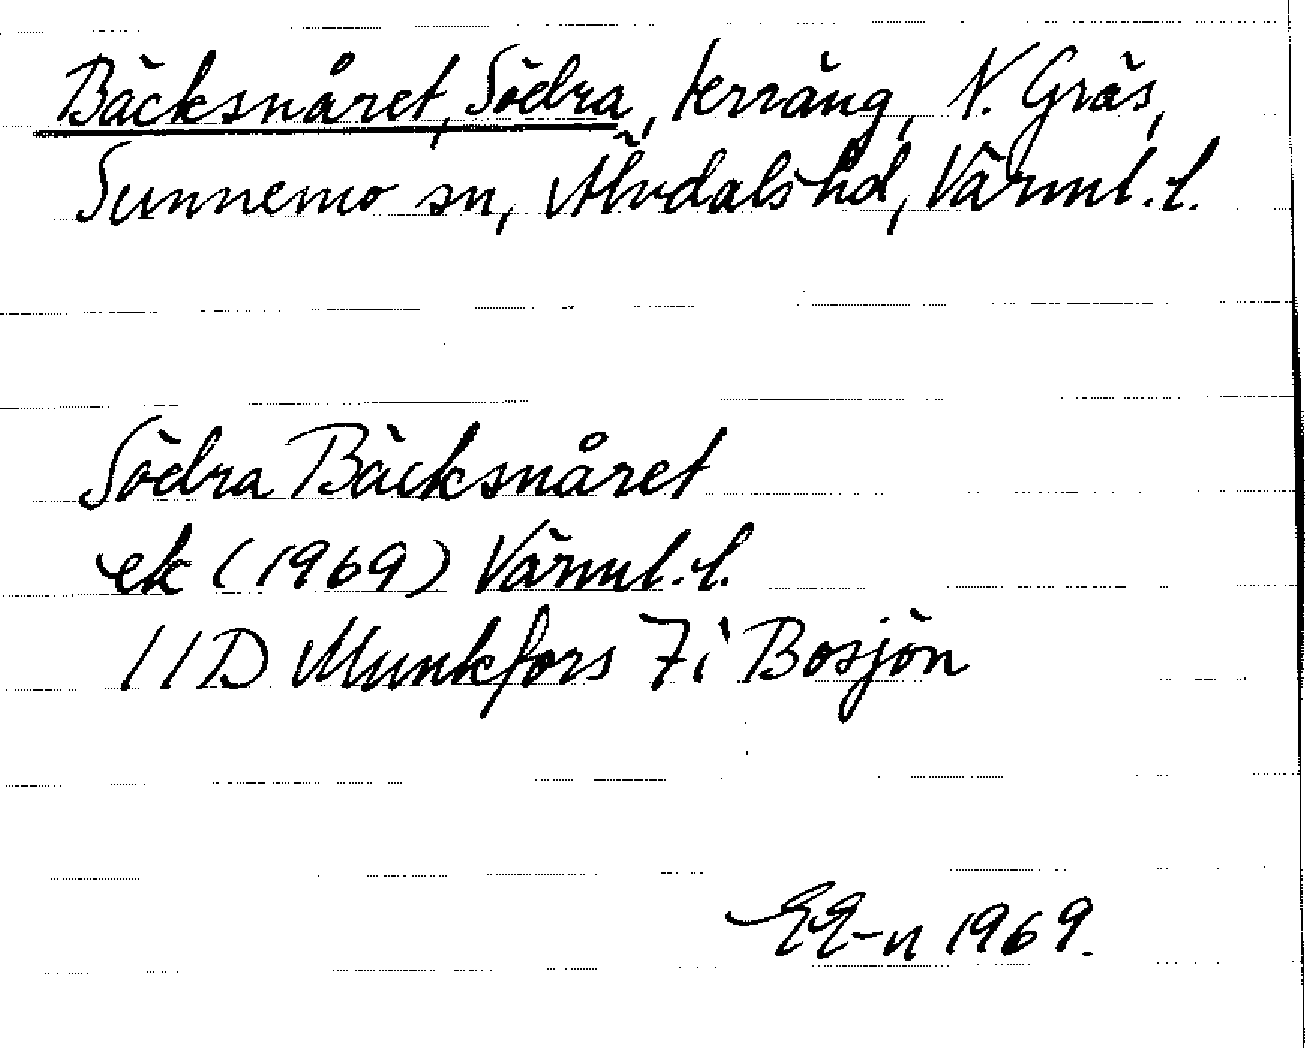 Bäcksnåret, Södra, terräng, N. Gräs,
Sunnemo sn, Älvdals hd, Värml. l.
Södra Bäcksnåret
ek (1969) Värml. l.
11D Munkfors 7i Bosjön
EE-n 1969.